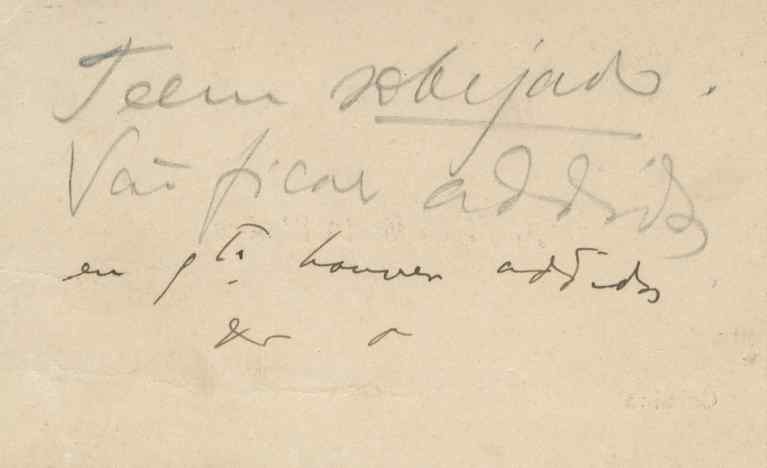 Teem sobejado.
Vão ficar addidos
en qto houver addidos